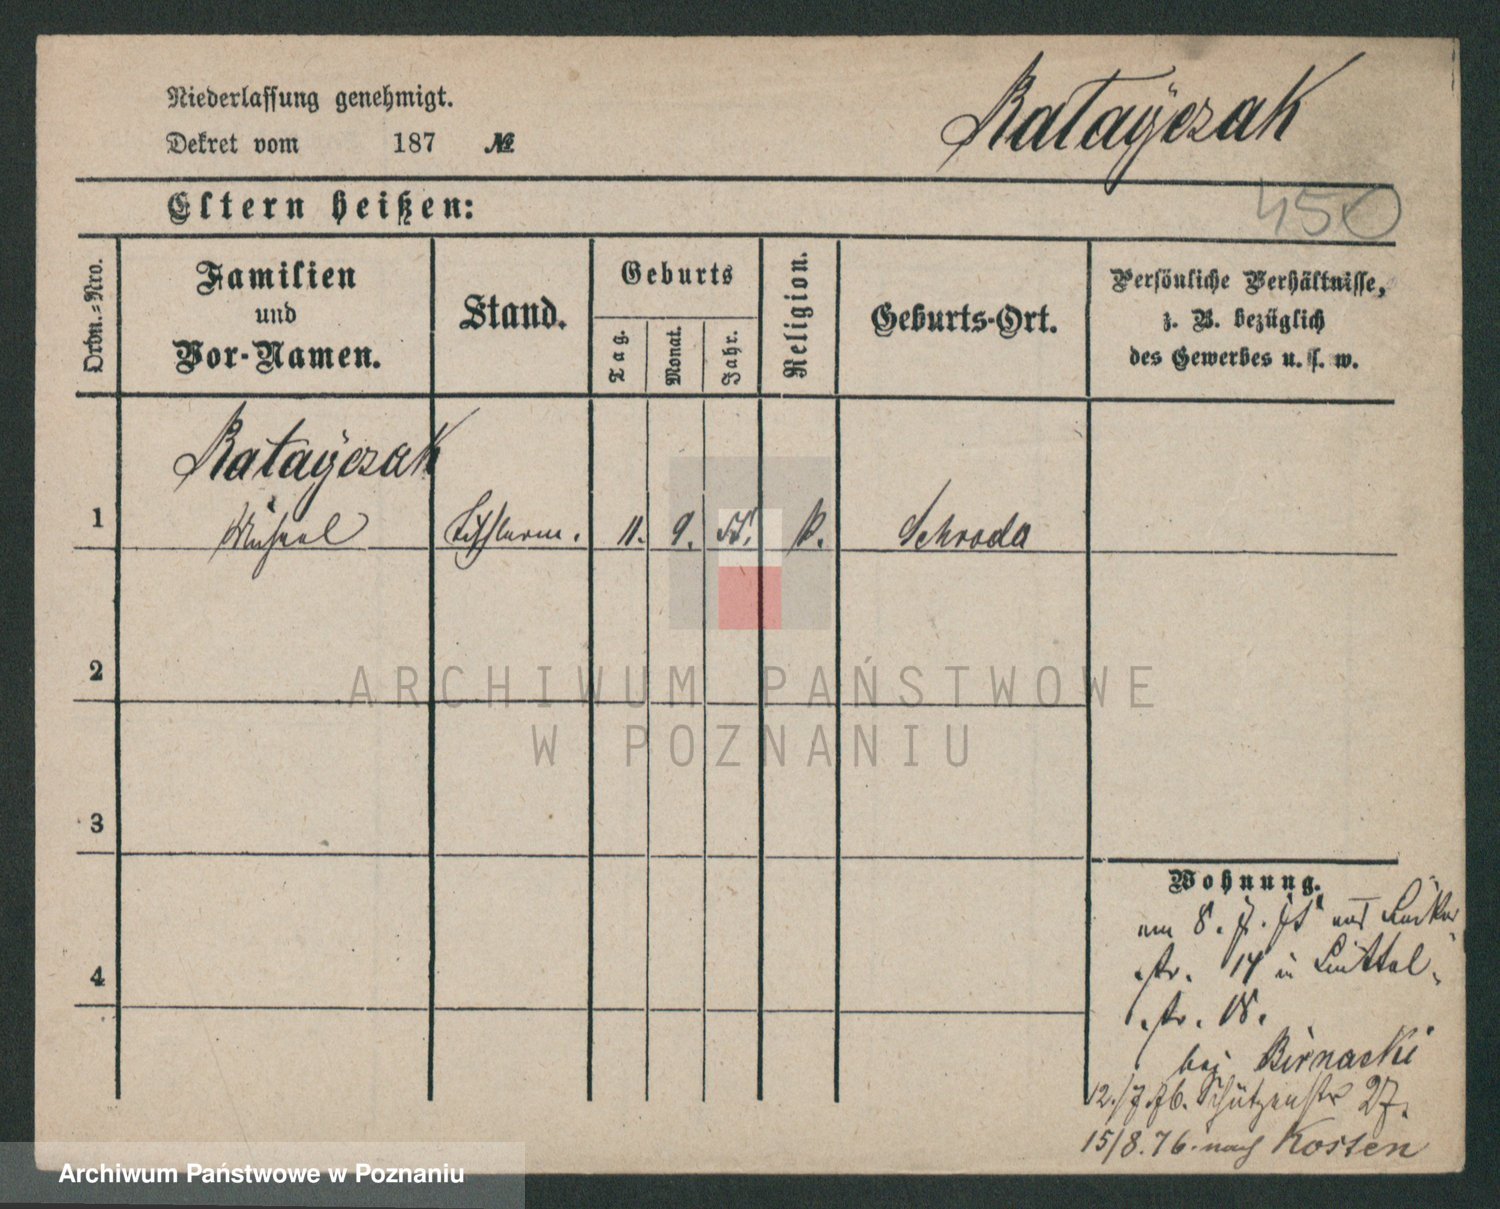 Niederlassung genehmigt.
Dekret vom 187 №
Ratayczak
450
Eltern heißen:
Ordn.-Nro.
Familien
und
Vor-Namen.
Stand.
Geburts
Tag.
Monat.
Jahr.
Religion.
Geburts-Ort.
Persönliche Verhältnisse,
z. B. bezüglich
des Gewerbes u. s. w.
Ratayczak
1 Michael 11. 9. k. Schroda
2
3
4
Wohnung.
am 8. 7. 75 aus
str. 14 in
str. 18.
bei Birnacki
12./7.76. Schützenstr 27.
15/8.76. nach Kosten
ARCHIWUM PAŃSTWOWE
W POZNANIU
Archiwum Państwowe w Poznaniu